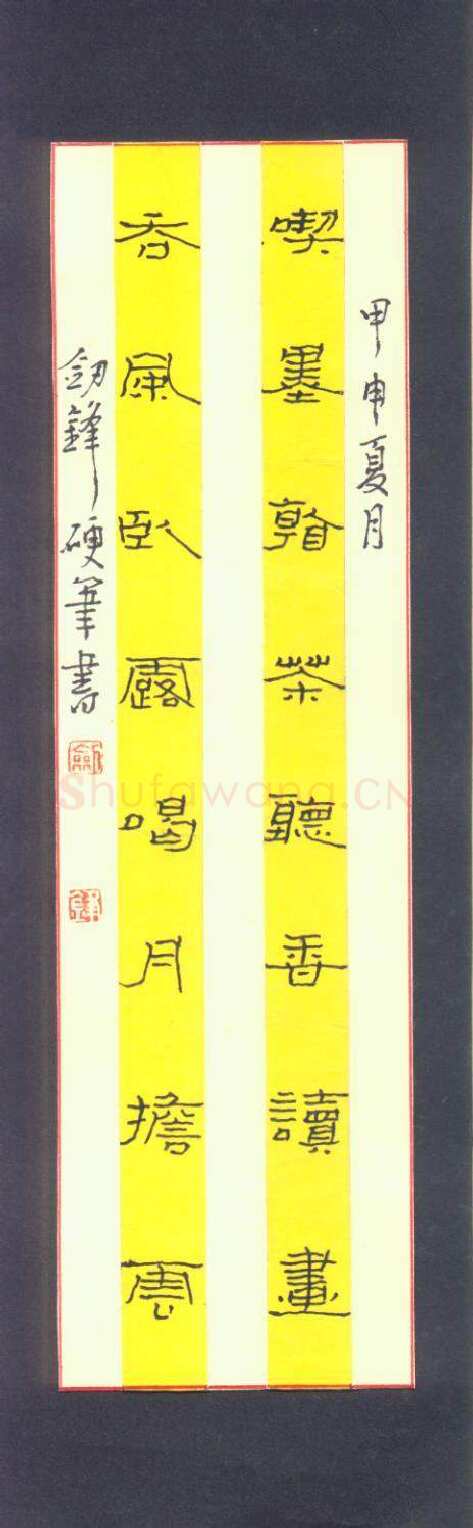 甲申夏月
喫墨看茶聽香讀畫
吞風臥露喝月擔雲
釼鋒硬筆書
Shufawang.CN